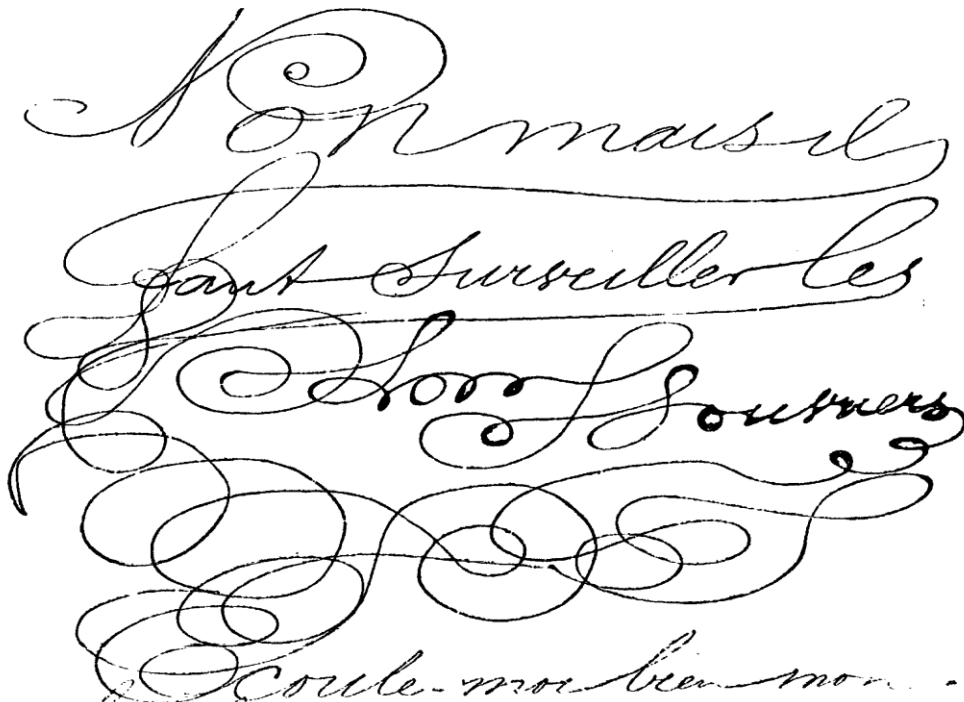 Non mais il
faut surveiller les
bons ouvriers
Ecoute-moi bien mon